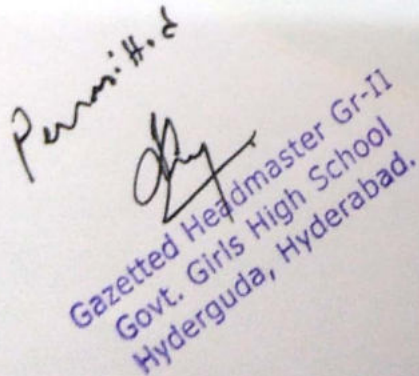 Permitted
Gazetted Headmaster Gr-II
Govt. Girls High School
Hyderguda, Hyderabad.